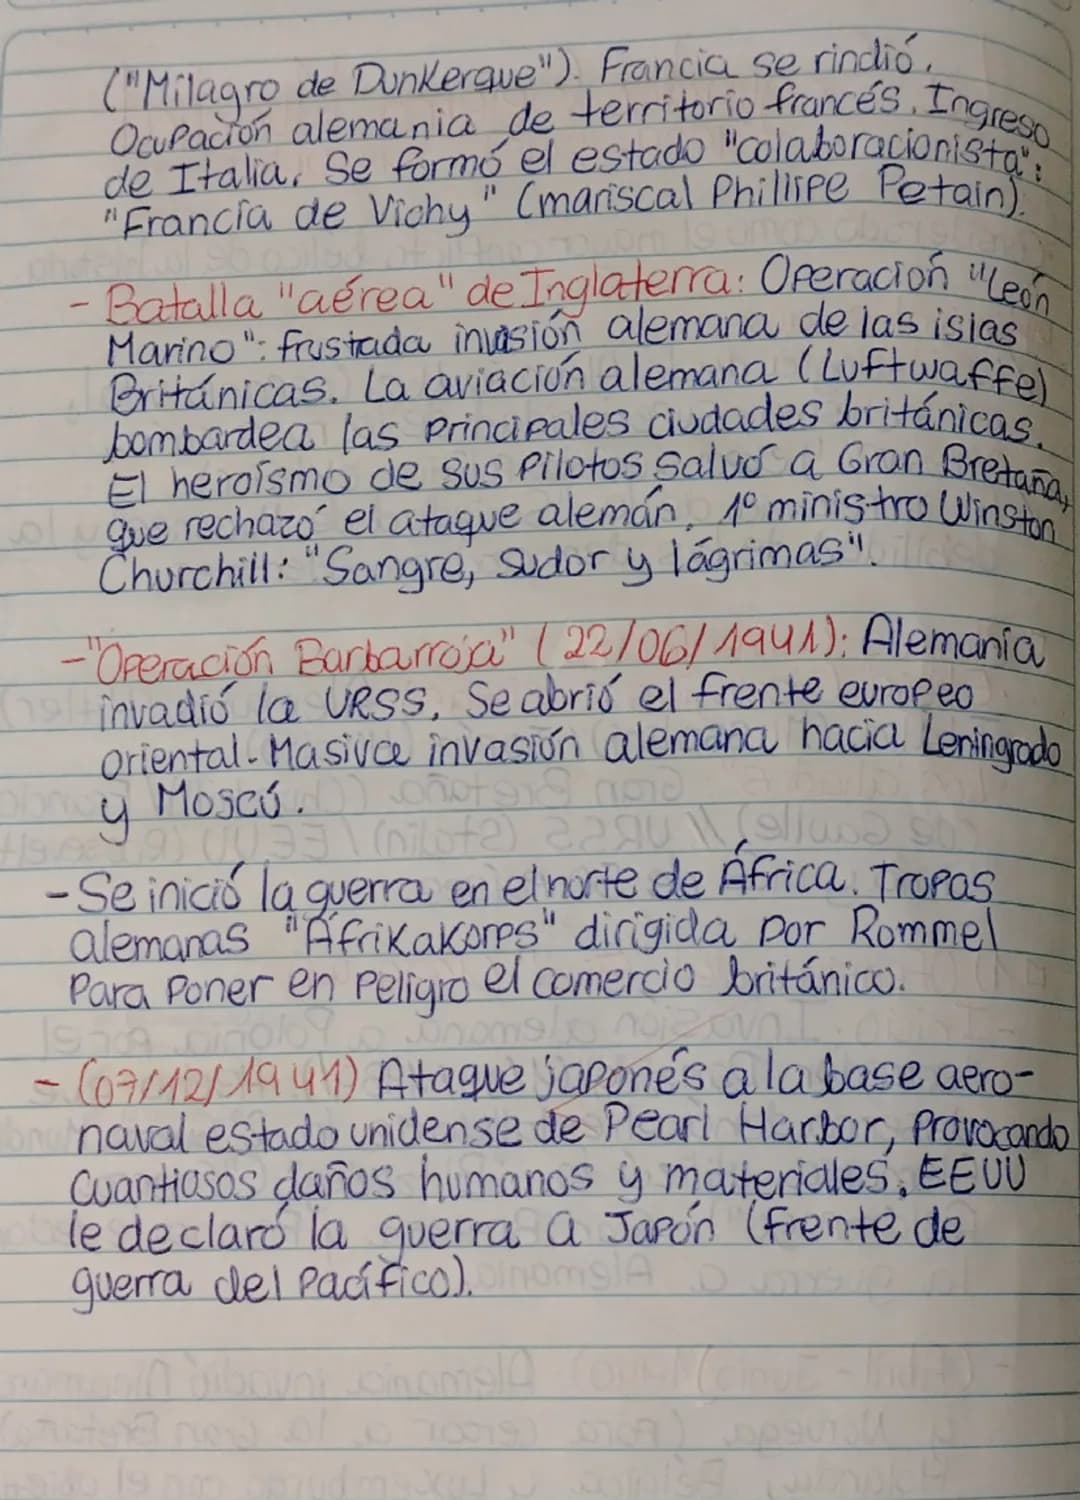 ("Milagro de Dunkerque"). Francia se rindió.
Ocupación alemania de territorio francés. Ingreso
de Italia. Se formó el estado "colaboracionista":
"Francia de Vichy" (mariscal Phillipe Petain).
- Batalla "aérea" de Inglaterra: Operación "León
Marino": frustrada invasión alemana de las islas
Británicas. La aviación alemana (Luftwaffe)
bombardea las principales ciudades británicas.
El heroísmo de sus pilotos salvó a Gran Bretaña,
que rechazó el ataque alemán. 1º ministro Winston
Churchill: "Sangre, sudor y lágrimas".
- "Operación Barbarroja" (22/06/1941): Alemania
invadió la URSS. Se abrió el frente europeo
oriental. Masiva invasión alemana hacia Leningrado
y Moscú.
- Se inició la guerra en el norte de África. Tropas
alemanas "Áfrikakorps" dirigida por Rommel
para poner en peligro el comercio británico.
- (07/12/1941) Ataque japonés a la base aero-
naval estado unidense de Pearl Harbor, provocando
cuantiosos daños humanos y materiales. EEUU
le declaró la guerra a Japón (frente de
guerra del Pacífico).